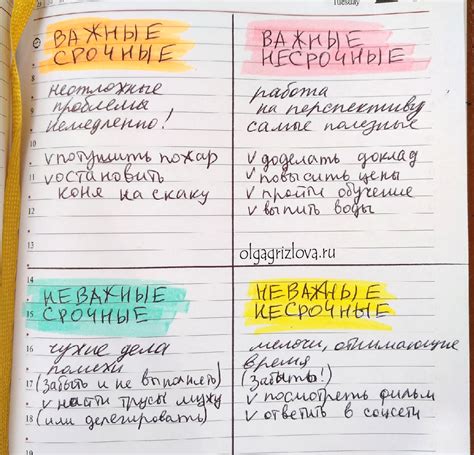 Tuesday
ВАЖНЫЕ
СРОЧНЫЕ
8
неотложные
9
проблемы
10
немедленно!
v потушить пожар
11
v остановить
коня на скаку
12
13
ВАЖНЫЕ
НЕСРОЧНЫЕ
работа
на перспективу
самые полезные
v доделать доклад
v повысить цены
v пройти обучение
v выпить воды
olgagrizlova.ru
14
НЕВАЖНЫЕ
15
СРОЧНЫЕ
16
чужие дела
помехи
17
(забыть и не выполнять)
v найти трусы мужу
18
(или делегировать)
НЕВАЖНЫЕ
НЕСРОЧНЫЕ
мелочи, отнимающие
время
(забыть!)
v посмотреть фильм
v ответить в соцсети